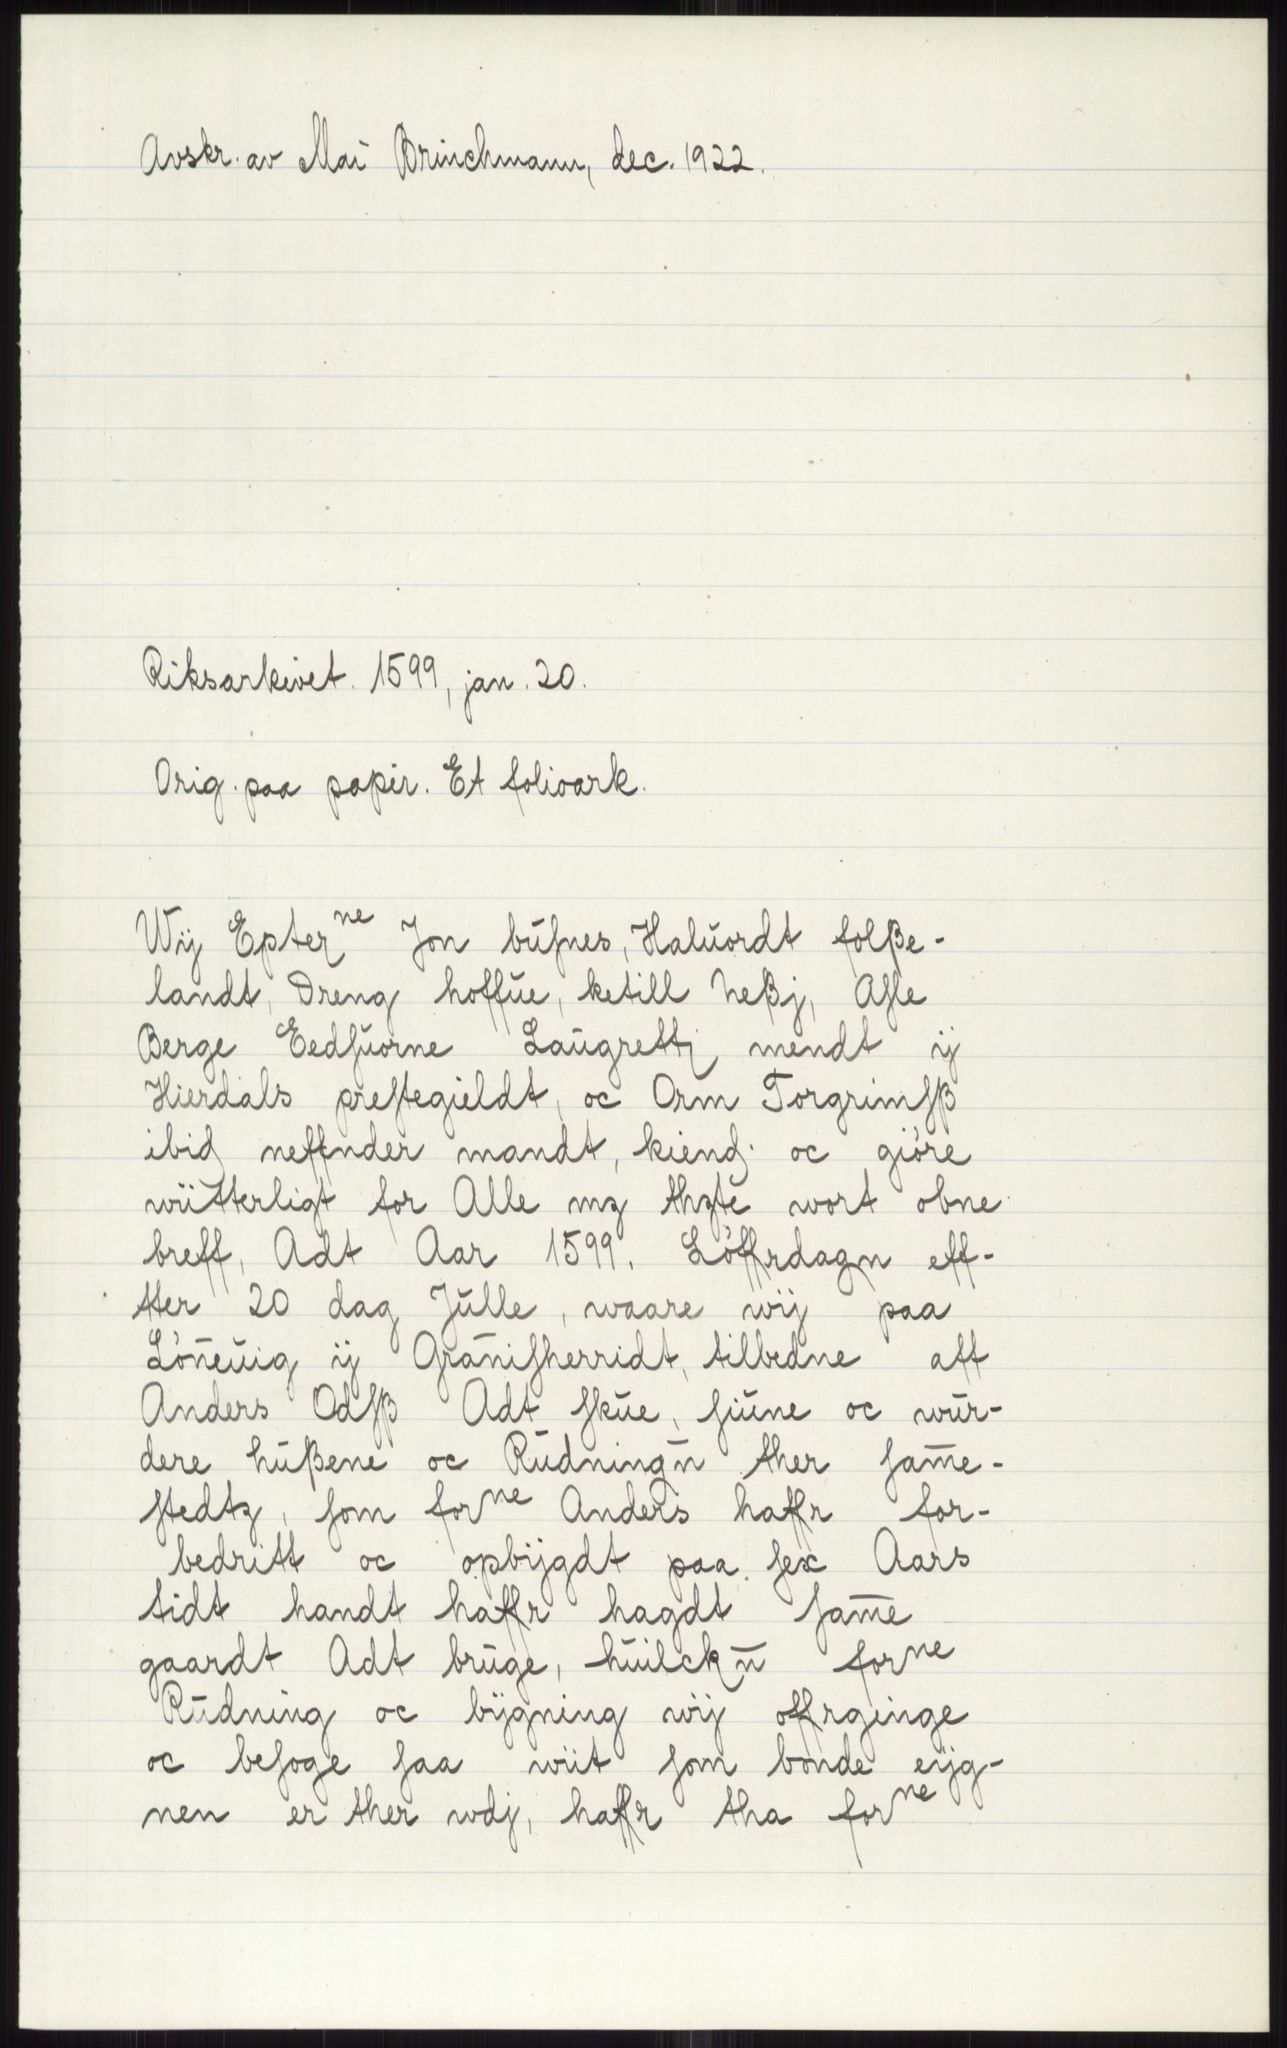 Avskr. av Mai Brinchmann, dec. 1922.
Riksarkivet. 1599, jan. 20.
Orig. paa papir. Et folioark.
Wij Epterne Jon buſnes, Haluordt folße-
landt, Dreng hoffue, ketill Neßj, Aſle
Berge Eedſuorne Laugrettj mendt ij
Hierdals preſtegieldt, oc Orm Torgrimſß
ibid neffnder mandt, kiend oc giöre
witterligt for Alle mz thzte wort obne
breff, Adt Aar 1599. Löffrdagn eff-
tter 20 dag Julle, waare wij paa
Löneuig ij Graniſherridt, tilbedne aff
Anders Odſß Adt ſkue, ſiune oc wur-
dere hußene oc Rudningn̄ ther ſam̄e-
ſtedtz, ſom forne Anders haffr for-
bedritt oc opbÿgdt paa ſex Aars
tidt handt haffr hagdt ſam̄e
gaardt Adt bruge, huilckn̄ forne
Rudning oc bÿgning wij offrginge
oc beſoge ſaa wiit ſom bonde eÿg-
nen er ther wdj, haffr tha forne